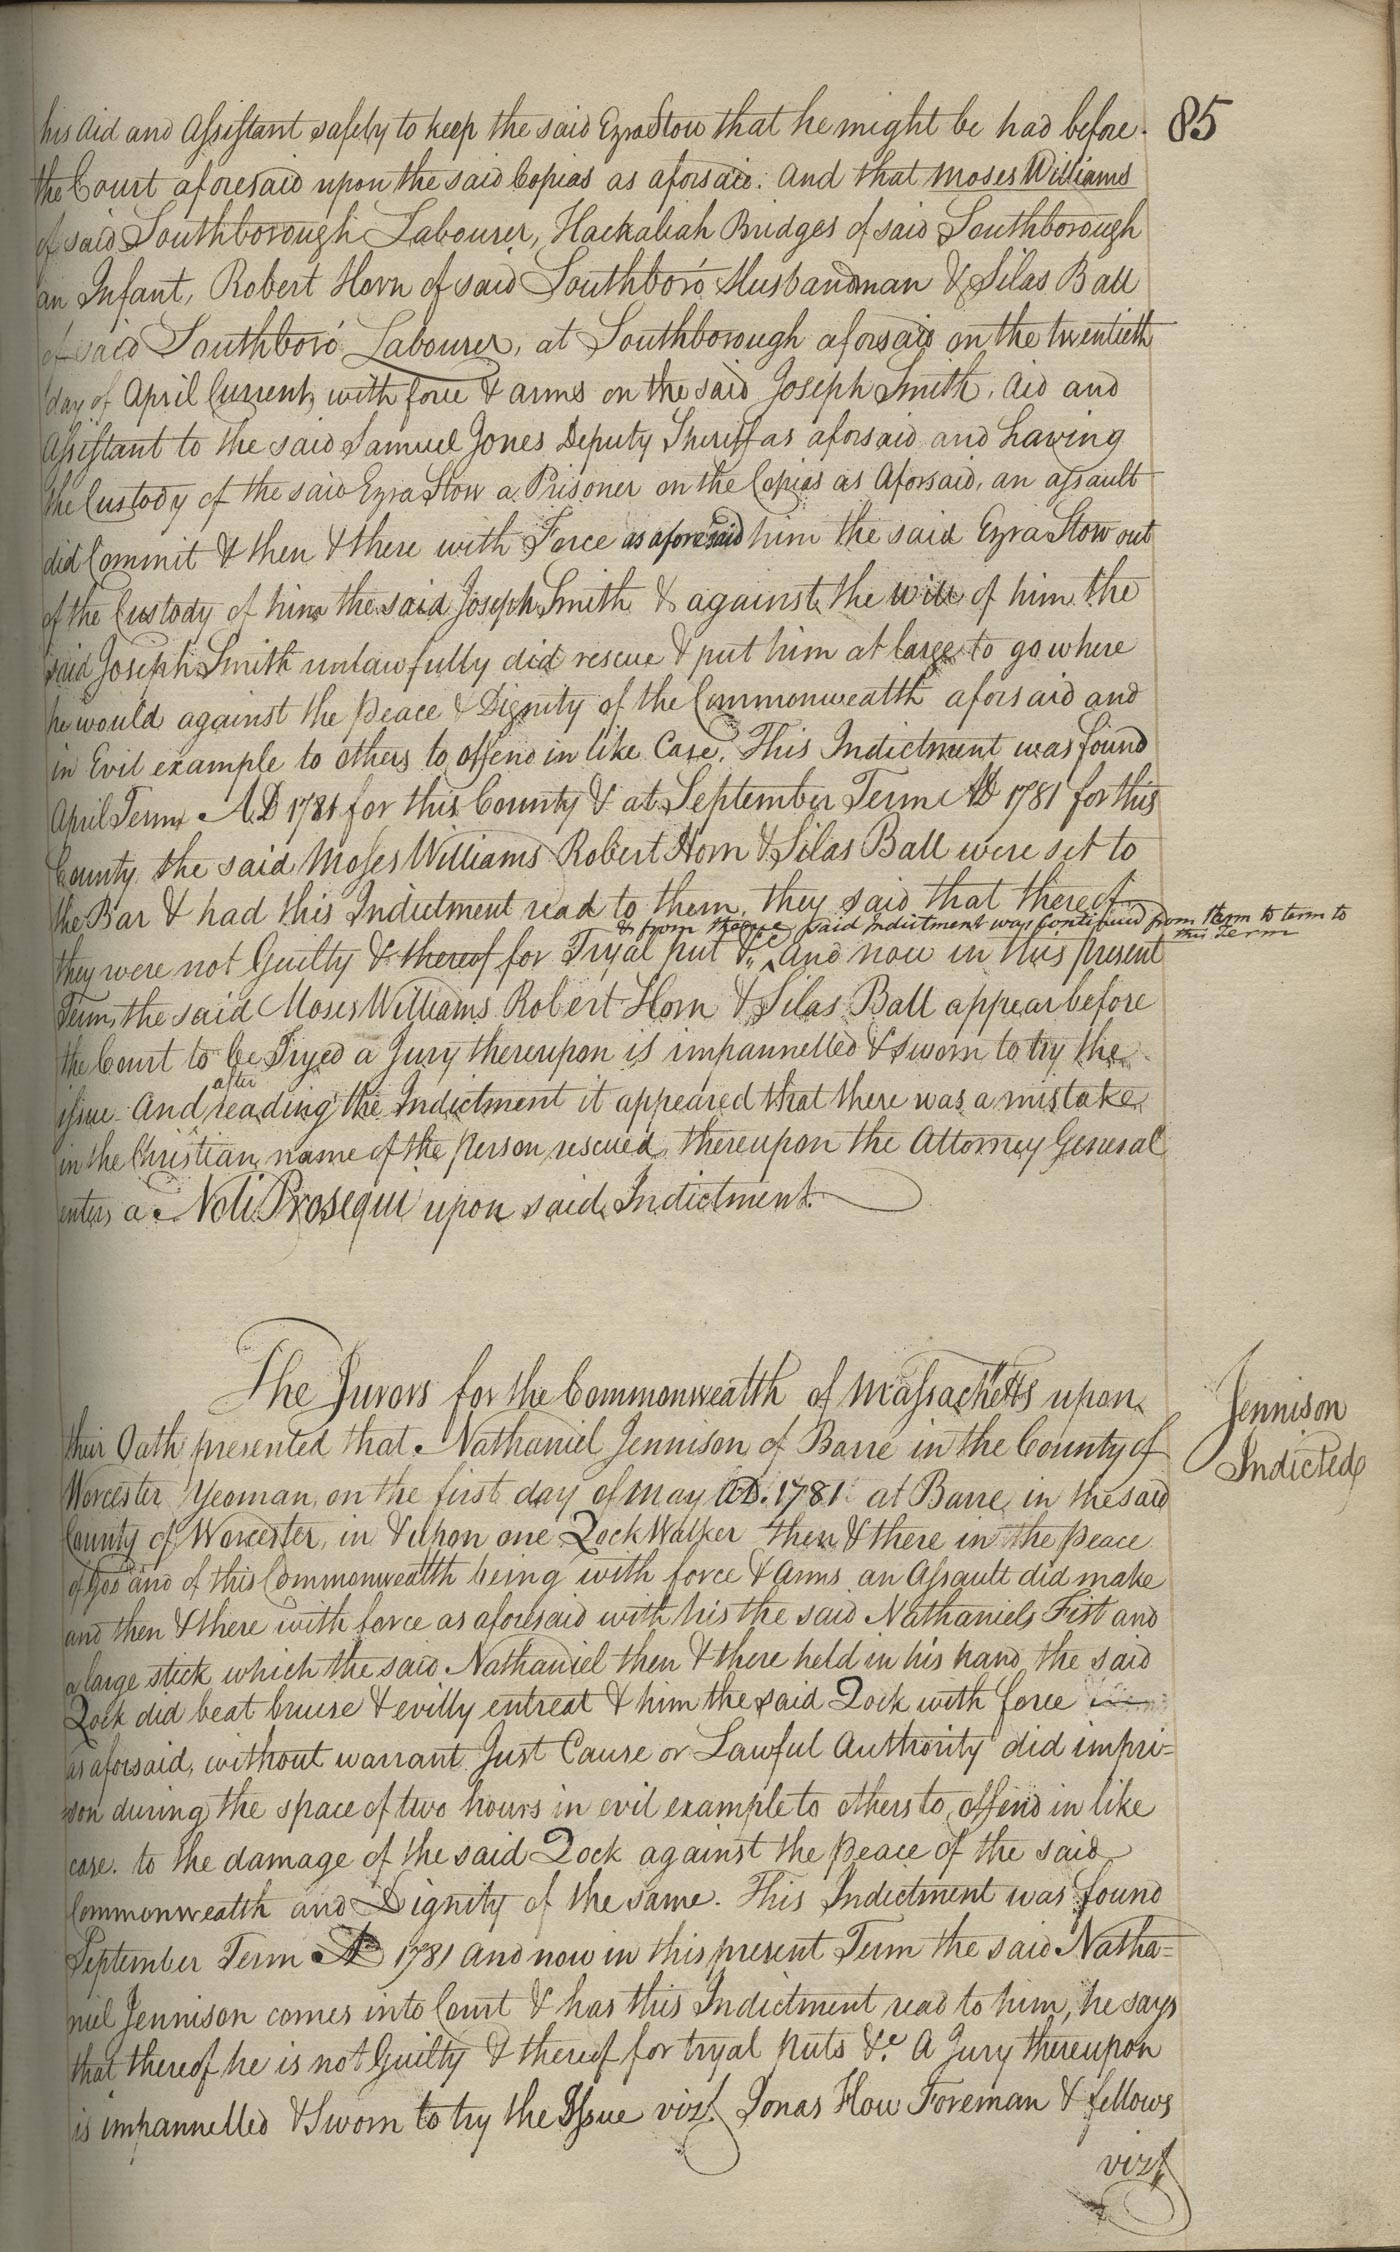 85
his Aid and Assistant safely to keep the said Ezra Stow that he might be had before
the Court aforesaid upon the said Copias as aforsaid. And that Moses Williams
of said Southborough Labourer, Hackaliah Bridges of said Southborough
an Infant, Robert Horn of said Southboro' Husbandman & Silas Ball
of said Southboro' Labourer, at Southborough aforsaid on the twentieth
day of April Current, with force & arms on the said Joseph Smith, Aid and
Assistant to the said Samuel Jones Deputy Sheriff as aforsaid and having
the Custody of the said Ezra Stow a Prisoner on the Copias as Aforsaid, an assault
did Commit & then & there with Force as aforesaid him the said Ezra Stow out
of the Custody of him the said Joseph Smith & against the will of him the
said Joseph Smith unlawfully did rescue & put him at large to go where
he would against the Peace & Dignity of the Commonwealth aforsaid and
in Evil example to others to offend in like Case. This Indictment was found
April Term A.D 1781 for this County & at September Term AD 1781 for this
County the said Moses Williams Robert Horn & Silas Ball were set to
the Bar & had this Indictment read to them, they said that thereof
& from thence said Indictment was Continued from term to term to
this Term
they were not Guilty & thereof for Tryal put &c. And now in this present
Term, the said Moses Williams Robert Horn & Silas Ball appear before
the Court to be Tryed a Jury thereupon is impannelled & sworn to try the
after
issue. And reading the Indictment it appeared that there was a mistake
in the Christian name of the Person rescued, thereupon the Attorney General
enters a Noli Prosequi upon said Indictment.
The Jurors for the Commonwealth of Massachetts upon
their Oath presented that Nathaniel Jennison of Barre in the County of
Jennison
Indicted
Worcester Yeoman, on the first day of May AD. 1781 at Barre in the said
County of Worcester, in & upon one Qock Walker then & there in the Peace
of God and of this Commonwealth being with force & Arms an Assault did make
and then & there with force as aforesaid with his the said Nathaniels Fist and
a large stick which the said Nathaniel then & there held in his hand the said
Qock did beat bruise & evilly entreat & him the said Qock with force
as aforsaid, without warrant Just Cause or Lawful Authority did impri=
son during the space of two hours in evil example to others to offend in like
case. to the damage of the said Qock against the peace of the said
Commonwealth and Dignity of the same. This Indictment was found
September Term AD 1781 and now in this present Term the said Natha=
niel Jennison comes into Court & has this Indictment read to him, he says
that thereof he is not Guilty & thereof for tryal puts &c. A Jury thereupon
is impannelled & Sworn to try the Issue vizt. Jonas How Foreman & fellows
vizt